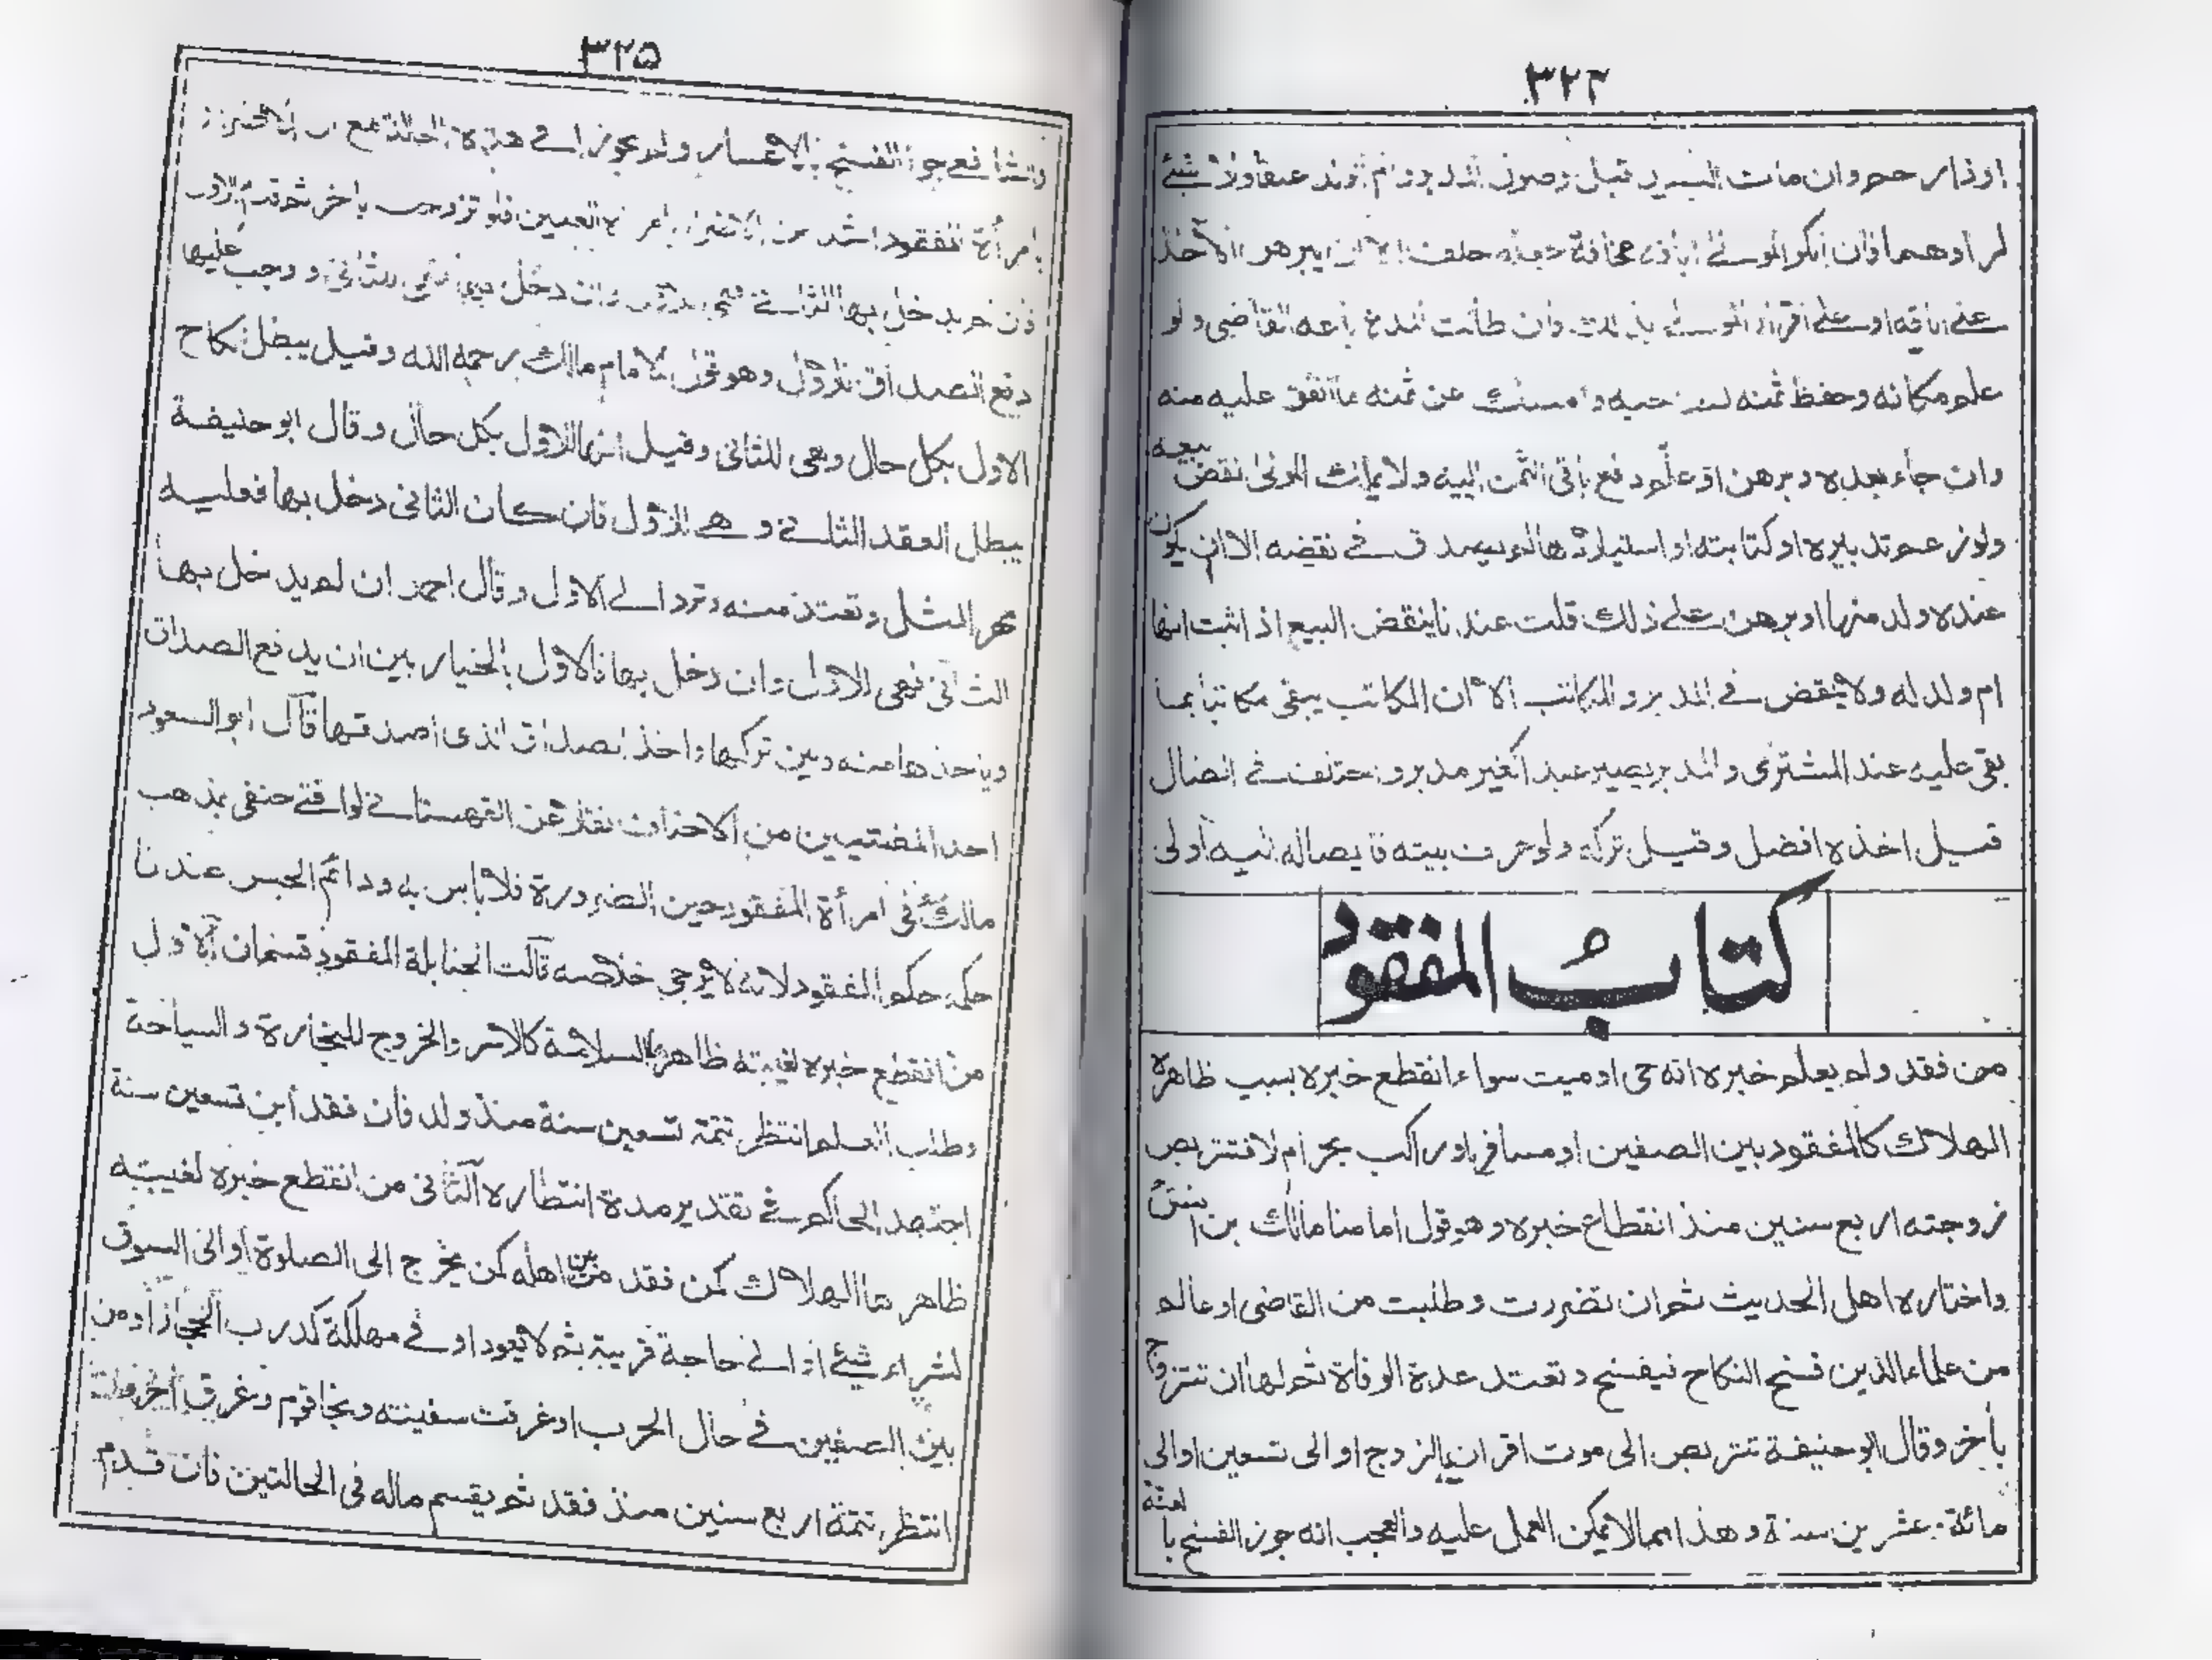 ۳۲۴
وان مات السيد قبل
لم او هما وان انكر المولى اباقه مخافة جعله حلف
على اباقه او على اقرار المولى بذلك وان طالت المدة باعه القاضى ولو
علم مكانه وحفظ ثمنه لصاحبه وامسك عن ثمنه ما انفق عليه منه
وان جاء بعده وبرهن او علم دفع باقى الثمن اليه ولا يملك المولى نقض بيعه
ولو زعم تدبيره او كتابته او استيلادها لم يصدق فى نقضه الا ان يكون
عنده ولد منها او برهن على ذلك قلت عندنا ينقض البيع اذا ثبت انها
ام ولد له ولا ينقض فى المدبر والمكاتب الا ان المكاتب يبقى مكاتبا بما
بقى عليه عند المشترى والمدبر يصير عبدا غير مدبر واختلف فى الضال
قيل اخذه افضل وقيل تركه ولو عرف بيته فايصاله اليه اولى
كتابُ المفقود
من فقد ولم يعلم خبره انه حى او ميت سواء انقطع خبره بسبب ظاهره
الهلاك كالمفقود بين الصفين او مسافر او راكب بحر ام لا فتتربص
زوجته اربع سنين منذ انقطاع خبره وهو قول امامنا مالك بن انس
واختاره اهل الحديث ثم ان تضررت وطلبت من القاضى او عالم
من علماء الدين فسخ النكاح فيفسخ وتعتد عدة الوفاة ثم لها ان تتزوج
بأخر وقال ابو حنيفة تتربص الى موت اقران الزوج او الى تسعين او الى
مائة وعشرين سنة وهذا مما لا يمكن العمل عليه والعجب انه جوز الفسخ با
۳۲۵
الفسخ بالاعسار ولم يجوزا فى هذه الحالة مع ان
امرأة المفقود اشد من فلو تزوجت باخر ثم قدم الاول
فان لم يدخل بها الثانى فهى للاول وان دخل بها فهى للثانى ووجب عليها
دفع الصداق للاول وهو قول الامام مالك رحمه الله وقيل يبطل نكاح
الاول بكل حال وهى للثانى وقيل انها للاول بكل حال وقال ابو حنيفة
يبطل العقد الثانى وهى للاول فان كان الثانى دخل بها فعليه
مهر المثل وتعتد منه وترد الى الاول وقال احمد ان لم يدخل بها
الثانى فهى للاول وان دخل بها فالاول بالخيار بين ان يدفع الصداق
وياخذها منه وبين تركها واخذ الصداق الذى اصدقها قال ابو السعود
احد المفتيين من الاحناف نقلا عن القهستانى لو افتى حنفى بمذهب
مالك فى امرأة المفقود حين الضرورة فلا باس به ودائم الحبس عندنا
حكمه حكم المفقود لانه لا يرجى خلاصه قالت الحنابلة المفقود قسمان الاول
من انقطع خبره لغيبته ظاهرها السلامة كالاسر والخروج للتجارة والسياحة
وطلب العلم انتظر تتمة تسعين سنة منذ ولد فان فقد ابن تسعين سنة
اجتهد الحاكم فى تقدير مدة انتظاره الثانى من انقطع خبره لغيبته
ظاهرها الهلاك كمن فقد من بين اهله كمن يخرج الى الصلوة او الى السوق
لشراء شئ او الى حاجة قريبة ثم لا يعود او فى مهلكة كدرب الحجاز او من
بين الصفين فى حال الحرب او غرقت سفينته ونجا قوم وغرق اخرون
انتظر تتمة اربع سنين منذ فقد ثم يقسم ماله فى الحالتين فان قدم